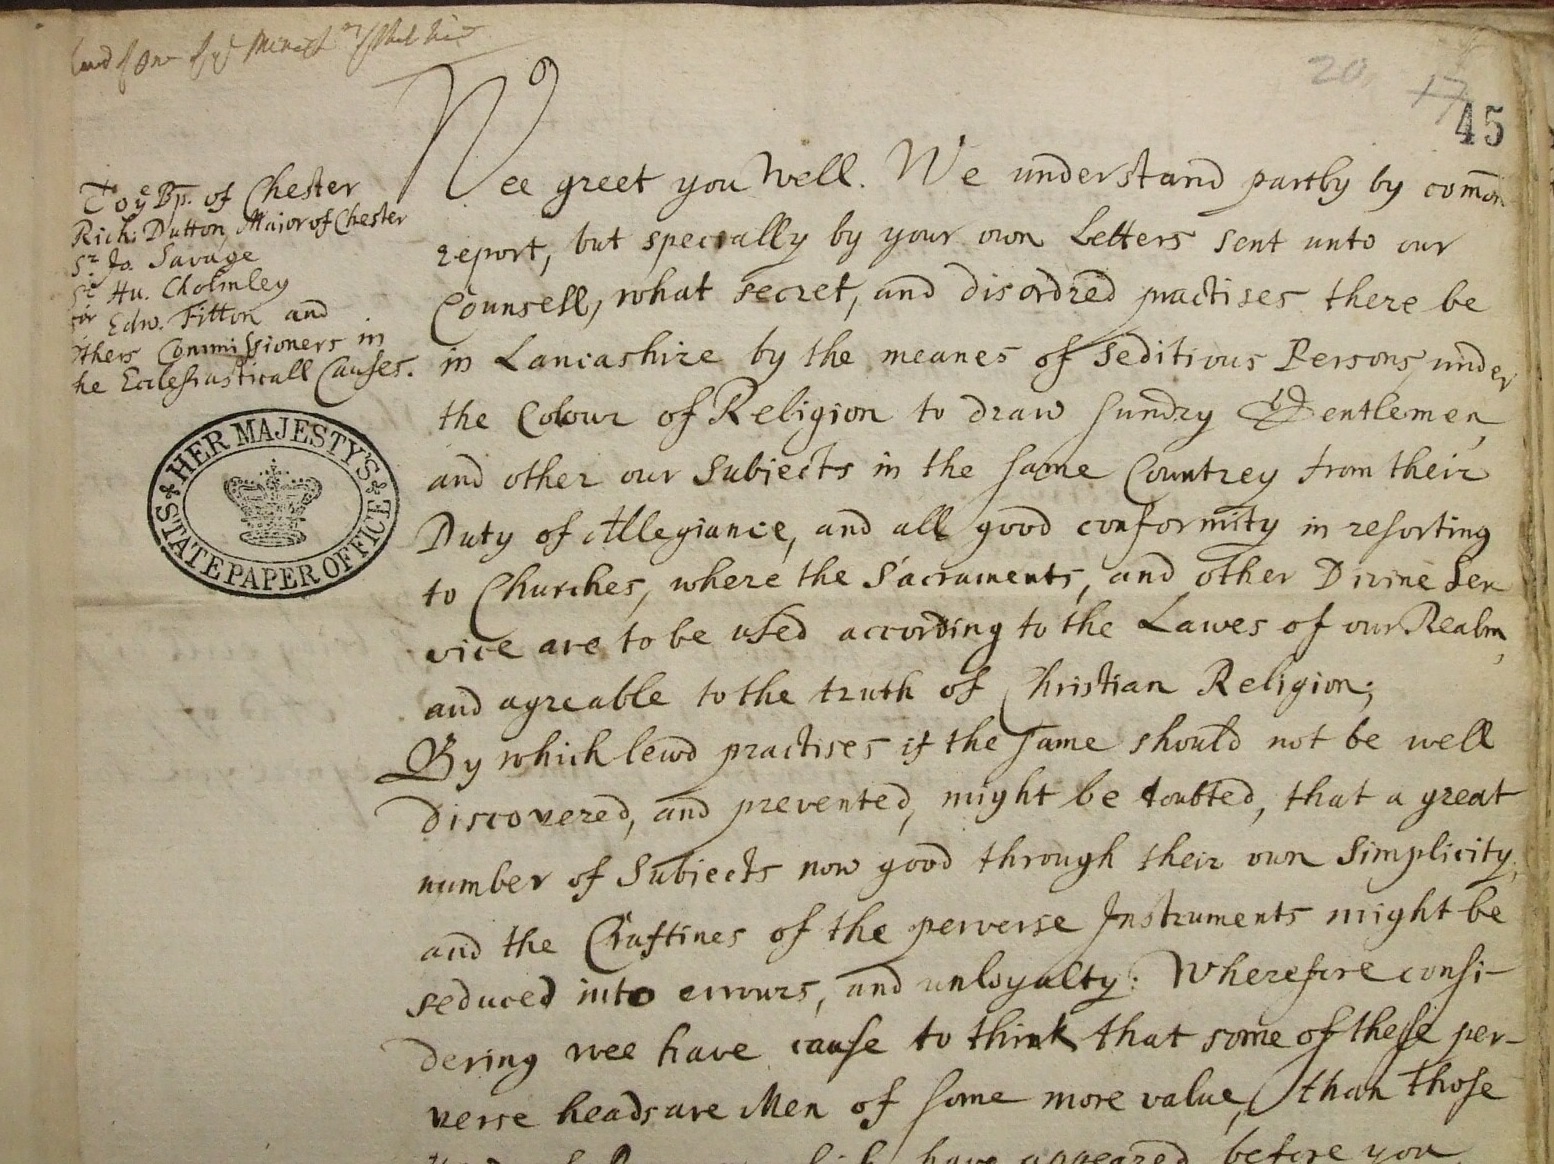 20 17
45
To ye Bp. of Chester
Rich: Dutton, Maior of Chester
Sr Jo. Savage
Sr Hu. Cholmley
Sr Edw. Fitton and
others Commissioners in
he Ecclesiasticall Causes.
HER MAJESTY'S
STATE PAPER OFFICE
Wee greet you Well. We understand partly by comōn
report, but specially by your own Letters sent unto our
Counsell, what secret, and disordred practises there be
in Lancashire by the meanes of seditious Persons, under
the Colour of Religion to draw sundry Gentlemen,
and other our Subiects in the same Countrey from their
Duty of Allegiance, and all good conformity in resorting
to Churches, where the Sacraments, and other Divine Ser
vice are to be used according to the Lawes of our Realm,
and agreable to the truth of Christian Religion;
By which lewd practises if the same should not be well
discovered, and prevented, might be doubted, that a great
number of Subiects now good through their own Simplicity,
and the Craftines of the perverse Instruments might be
seduced into errours, and unloyalty: Wherefore consi-
dering wee have cause to think that some of these per-
verse heads are Men of some more value, than those
have appeared before you